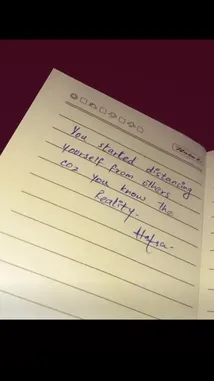 You started distancing
yourself from others
coz you know the
Reality.
Hafsa.